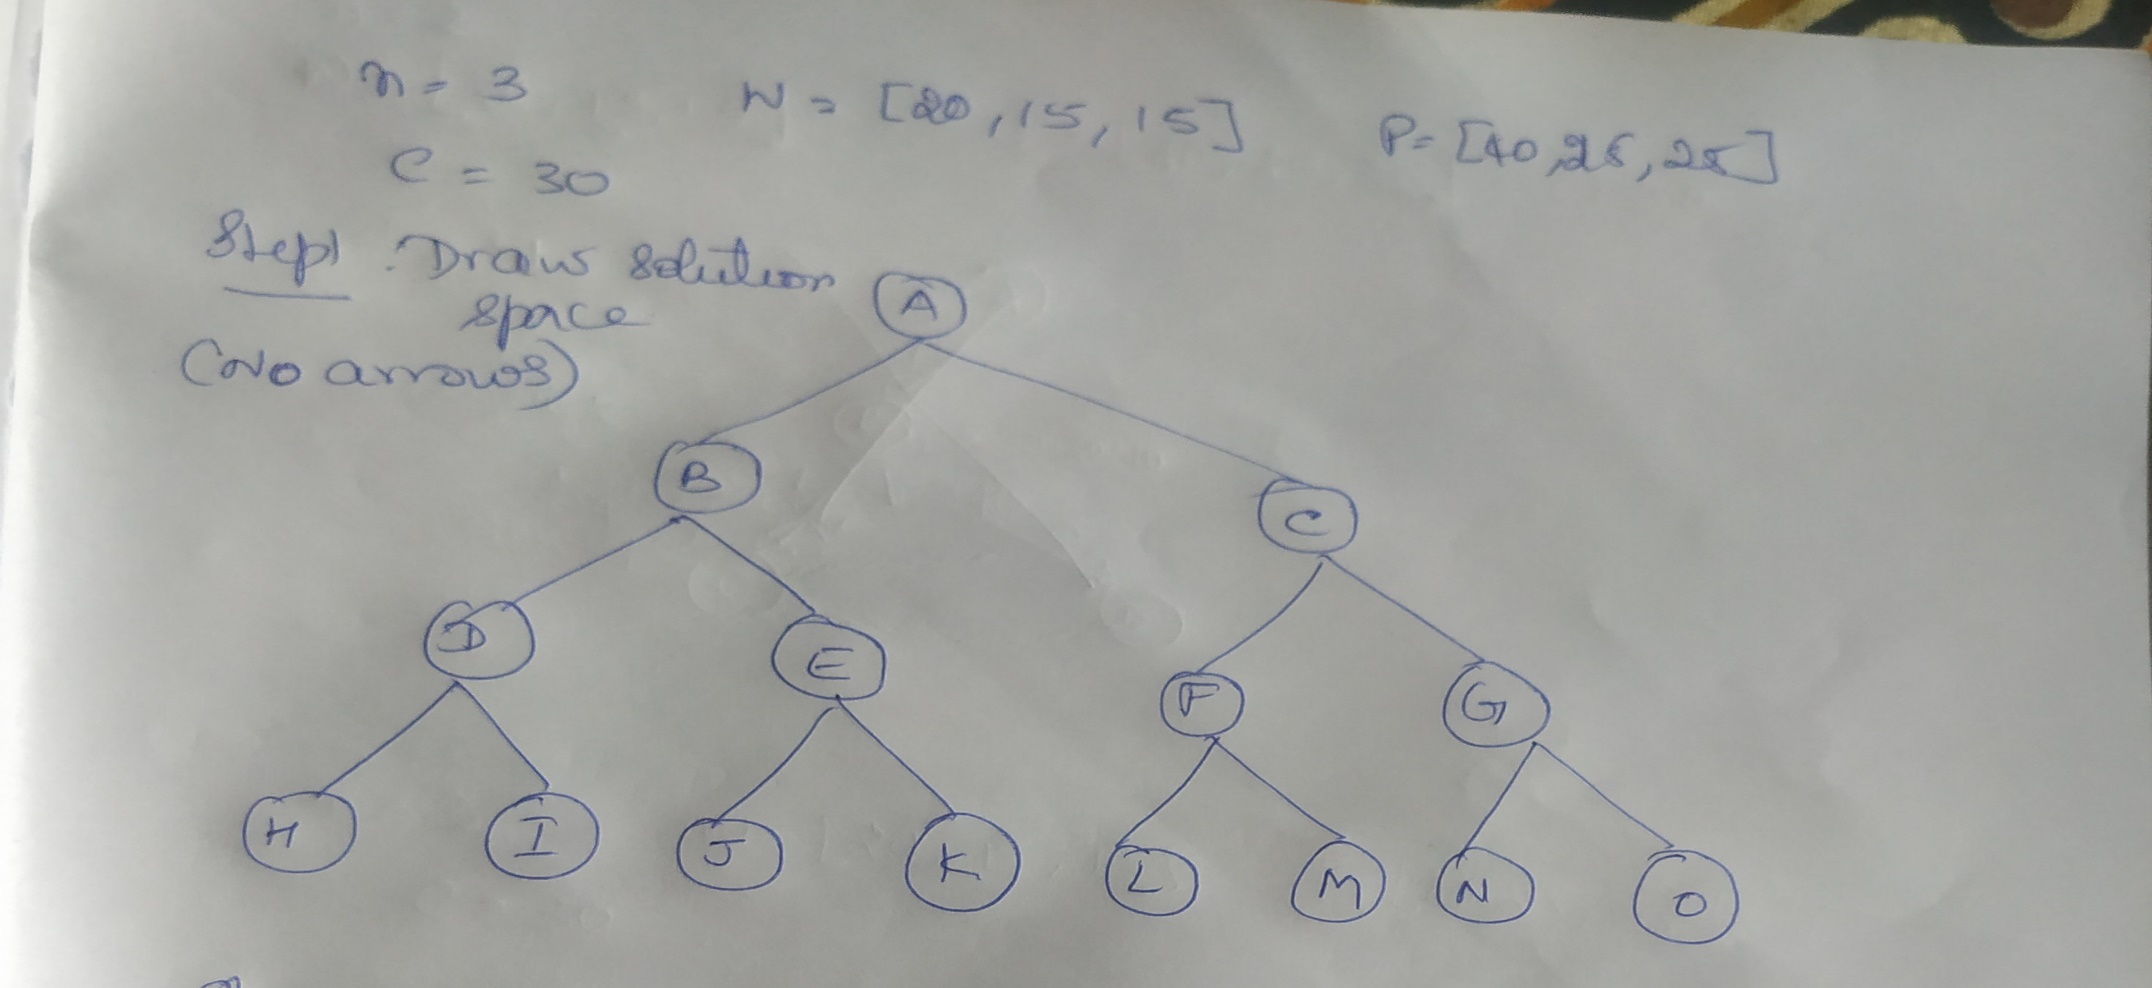 n = 3
W = [20, 15, 15]
P = [40, 25, 25]
C = 30
Step1 : Draw solution
space
(No arrows)
A
B
C
D
E
F
G
H
I
J
K
L
M
N
O